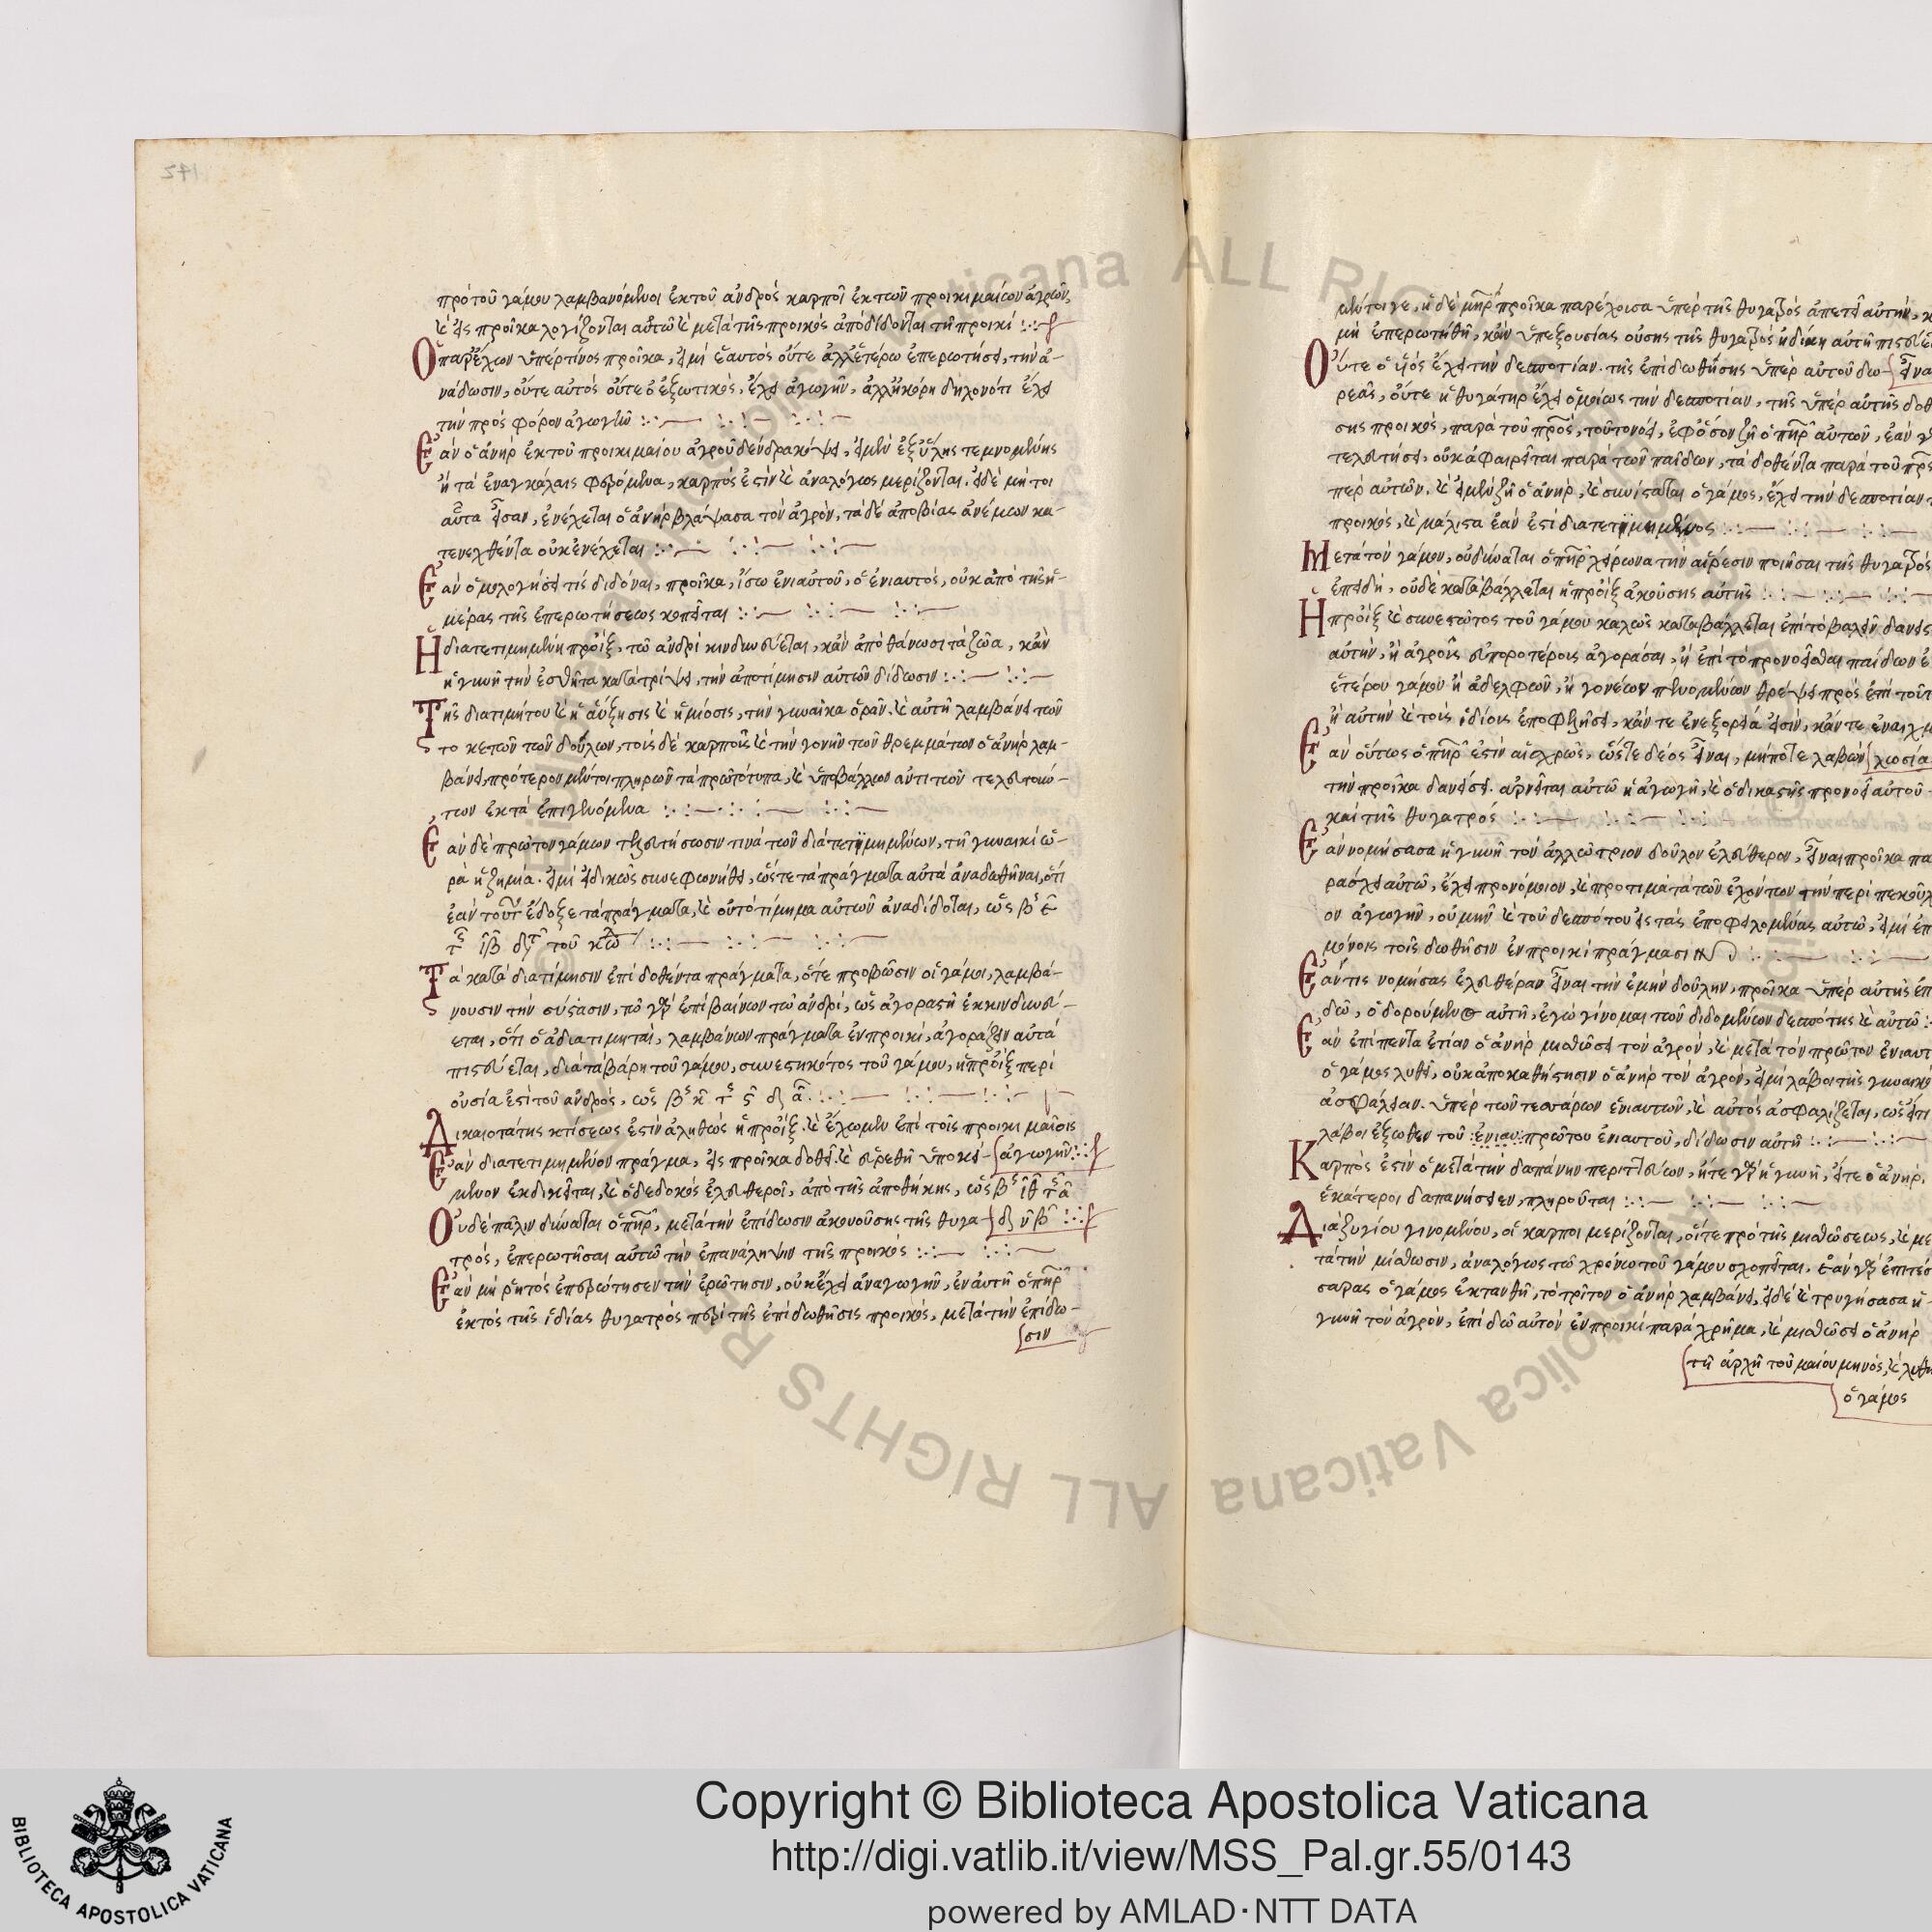 πρό τοῦ γάμου λαμβανόμενοι ἐκ τοῦ ἀνδρός καρποί ἐκ τῶν προικιμαίων ἀγρῶν,
καὶ εἰς προῖκα λογίζονται αὐτῶ καὶ μετὰ τῆς προικός ἀποδίδονται τῆ προικί
Ὁ παρέχων ὑπέρ τινος προῖκα, εἰ μή ἑαυτός οὔτε ἀλλ' ἑτέρω ἐπερωτήσει, τήν ἀ-
νάδωσιν, οὔτε αὐτός οὔτε ὁ ἐξωτικός, ἔχει ἀγωγήν, ἀλλ' ἡ κόρη δηλονότι ἔχει
τήν πρός φόρον ἀγωγήν
Ἐάν ὁ ἀνήρ ἐκ τοῦ προικιμαίου ἀγροῦ δένδρα κόψει, εἰ μέν ἐξ ὕλης τεμνομένης
ἢ τά ἐν ἀγκάλαις φερόμενα, καρπός ἐστίν καὶ ἀναλόγως μερίζονται. εἰ δέ μή τοι
αὗτα εἶσαν, ἐνέχεται ὁ ἀνήρ βλάψασα τόν ἀγρόν, τά δέ ἀπό βίας ἀνέμων κα-
τενεχθέντα οὐκ ἐνέχεται
Ἐάν ὁμολογήσει τίς διδόναι, προῖκα, ἴσω ἐνιαὐτοῦ, ὁ ἐνιαυτός, οὐκ ἀπό τῆς ἡ-
μέρας τῆς ἐπερωτήσεως κοπεῖται
Ἡ διατετιμημένη προίξ, τῶ ἀνδρί κινδυνεύεται, κἄν ἀποθάνωσι τά ζῶα, κἄν
ἡ γυνή τήν ἐσθῆτα κατατρίψει, τήν ἀποτίμησιν αὐτῶν δίδωσιν
Τῆς διατιμήτου καὶ ἡ αὔξησις καὶ ἡ μίοσις, τήν γυναῖκα ὁρᾶν. καὶ αὐτή λαμβάνει τῶν
το κετῶν τῶν δούλων, τοίς δέ καρποῖς καὶ τήν γονήν τῶν θρεμμάτων ὁ ἀνήρ λαμ-
βάνει, πρότερον μέντοι πληρῶν τά πρωτότυπα, καὶ ὑποβάλλων ἀντί τῶν τελευτούν-
των ἐκ τά ἐπιγενόμενα
Ἐάν δέ πρῶτον γάμων τελευτήσωσιν τινά τῶν διατετιμημένων, τῆ γυναικί ὡ-
ρά ἡ ζημία. εἰ μή εἰδικῶς συνεφωνήθει, ὥστε τά πράγματα αὐτά ἀναδωθῆναι, ὅτι
ἐάν τοῦτ' ἔδοξε τά πράγματα, καὶ οὐ τό τίμημα αὐτῶν ἀναδίδοται, ὡς
Τά κατά διατίμησιν ἐπιδοθέντα πράγματα, ὅτε προβῶσιν οἱ γάμοι, λαμβά-
νουσιν τήν σύστασιν, τό γάρ ἐπιβαίνων τῶ ἀνδρί, ὡς ἀγοραστή ἐκκινδυνεύ-
εται, ὅτι ὁ ἀδιατιμηταί, λαμβάνων πράγματα ἐν προικί, ἀγοράζειν αὐτά
πιστεύεται, διά τά βάρη τοῦ γάμου, συνεστηκότος τοῦ γάμου, ἡ προίξ περί
ουσία ἐστί τοῦ ἀνδρός, ὡς
Δικαιοτάτης κτίσεως ἐστίν ἀληθῶς ἡ προίξ. καὶ ἔχωμεν ἐπί τοῖς προικιμαῖοις
Ἐάν διατετιμημένον πράγμα, εἰς προῖκα δοθεί. καὶ εὑρεθῆ ὑποκεί- ἀγωγήν
μενον ἐκδικεῖται, καὶ ὁ δεδοκός ἐλευθεροῖ, ἀπό τῆς ἀποθήκης, ὡς
Οὐδέ πάλιν δύναται ὁ πηρ, μετά τήν ἐπίδωσιν ἀκουούσης τῆς θυγα-
τρός, ἐπερωτῆσαι αὐτῶ τήν ἐπανάληψιν τῆς προικός
Ἐάν μή ῥητός ἐπερώτησεν τήν ἐρώτησιν, οὐκ ἔχει ἀναγωγήν, ἐν αὐτῆ ὁ πηρ
ἐκτός τῆς ἰδίας θυγατρός περί τῆς ἐπιδωθήσις προικός, μετά τήν ἐπίδω-
σιν
μέντοιγε, ἡ δέ μηρ προῖκα παρέχοισα ὑπέρ τῆς θυγατρός ἀπετεῖ αὐτήν,
μή ἐπερωτήθη, κἄν ὑπεξουσίας οὔσης τῆς θυγατρός ἡ δίκη αὐτῆ
Οὔτε ὁ ὑός ἔχει τήν δεσποτίαν. τῆς ἐπιδωθήσης ὑπέρ αὐτοῦ δω- εἶνα
ρεᾶς, οὔτε ἡ θυγάτηρ ἔχει ὁμοίως τήν δεσποτίαν, τῆς ὑπέρ αὐτῆς δοθ
σης προικός, παρά τοῦ πρός, τοῦτο νόει, ἐφ' ὅσον ζῆ ὁ πηρ αὐτῶν, ἐάν
τελευτήσει, οὐκ ἀφαιρεῖται παρά τῶν παίδων, τά δοθέντα παρά τοῦ πρς
περ αὐτῶν. καὶ εἰ μέν ζῆ ὁ ἀνήρ, καὶ συνίσταται ὁ γάμος, ἔχει τήν δεσποτίαν
προικός, καὶ μάλιστα ἐάν ἐστί διατετιμημένος
Μετά τόν γάμον, οὐ δύναται ὁ πηρ χείρωνα τήν αἵρεσιν ποιῆσαι τῆς θυγατρός
ἐπειδή, οὐδέ καταβάλλεται ἡ προίξ ἀκούσης αὐτῆς
Ἡ προίξ καὶ συνεστῶτος τοῦ γάμου καλῶς καταβάλλεται ἐπί τό βαλεῖν
αὐτήν, ἢ ἀγρούς εὐποροτέροις ἀγορᾶσαι, ἢ ἐπί τό προνοεῖσθαι παίδων
ἑτέρου γάμου ἢ ἀδελφῶν, ἢ γονέων πενομένων θρέψει πρός ἐπί
ἢ αὐτήν καὶ τοίς ἰδίοις ἐποφειλήσει, κἄν τε ἐν ἐξορεία εἰσίν, κἄν τε ἐν
Ἐάν οὕτως ὁ πηρ ἐστίν αἰσχρῶς, ὥστε δέος εἶναι, μήποτε λαβών
τήν προῖκα δανείσει. ἀρνεῖται αὐτῶ ἡ ἀγωγή, καὶ ὁ δικαστής προνοεῖ αὐτοῦ
καί τῆς θυγατρός
Ἐάν νομήσασα ἡ γυνή τόν ἀλλώτριον δοῦλον ἐλεύθερον, εἶναι προῖκα πα
ρασχει αὐτῶ, ἔχει προνόμιον, καὶ προτιμᾶτα τῶν ἐχόντων τήν περί πεκουλ
ον ἀγωγήν, οὐ μήν καὶ τοῦ δεσπότου εἰς τάς ἐποφειλομένας αὐτῶ, εἰ μή ἐπ
μόνοις τοῖς δωθῆσιν ἐν προικί πράγμασιν
Ἐάν τις νομήσας ἐλευθέραν εἶναι τήν ἐμήν δούλην, προῖκα ὑπέρ αὐτῆς ἐπ
δῶ, ὁ δορούμενος αὐτῆ, ἐγώ γίνομαι τῶν διδομένων δεσπότης καὶ αὐτῶ
Ἐάν ἐπί πενταετίαν ὁ ἀνήρ μισθώσει τόν ἀγρόν, καὶ μετά τόν πρῶτον ἐνιαυτ
ὁ γάμος λυθεί, οὐκ ἀποκαθήστησιν ὁ ἀνήρ τόν ἀγρόν, εἰ μή λάβοι τῆς γυναικό
ἀσφάλειαν. ὑπέρ τῶν τεσσάρων ἐνιαυτῶν, καὶ αὐτός ἀσφαλίζεται, ὡς εἴτι
λάβοι ἔξωθεν τοῦ ἐνιαυ πρώτου ἐνιαυτοῦ, δίδωσιν αὐτῆ
Καρπός ἐστίν ὁ μετά τήν δαπάνην περιττεύων, ἤτε γάρ ἡ γυνή, εἴτε ὁ ἀνήρ.
ἑκάτεροι δαπανήσειεν, πληροῦται
Διαζυγίου γινομένου, οἱ καρποι μερίζονται, οἵτε πρό τῆς μισθώσεως, καὶ με
τά τήν μίσθωσιν, ἀναλόγως τῶ χρόνω τοῦ γάμου σκοπεῖται. ἐάν γάρ ἐπί τεσ
σαρας ὁ γάμος ἐκτανθῆ, τό τρίτον ὁ ἀνήρ λαμβάνει, εἰ δέ καὶ τρυγήσασα ἡ-
γυνή τόν ἀγρόν, ἐπιδῶ αὐτόν ἐν προικί παρά χρῆμα, καὶ μισθώσει ὁ ἀνήρ
τῆ ἀρχῆ τοῦ μαίου μηνός, καὶ λυθη
ὁ γάμος
Copyright © Biblioteca Apostolica Vaticana
http://digi.vatlib.it/view/MSS_Pal.gr.55/0143
powered by AMLAD·NTT DATA
BIBLIOTECA APOSTOLICA VATICANA